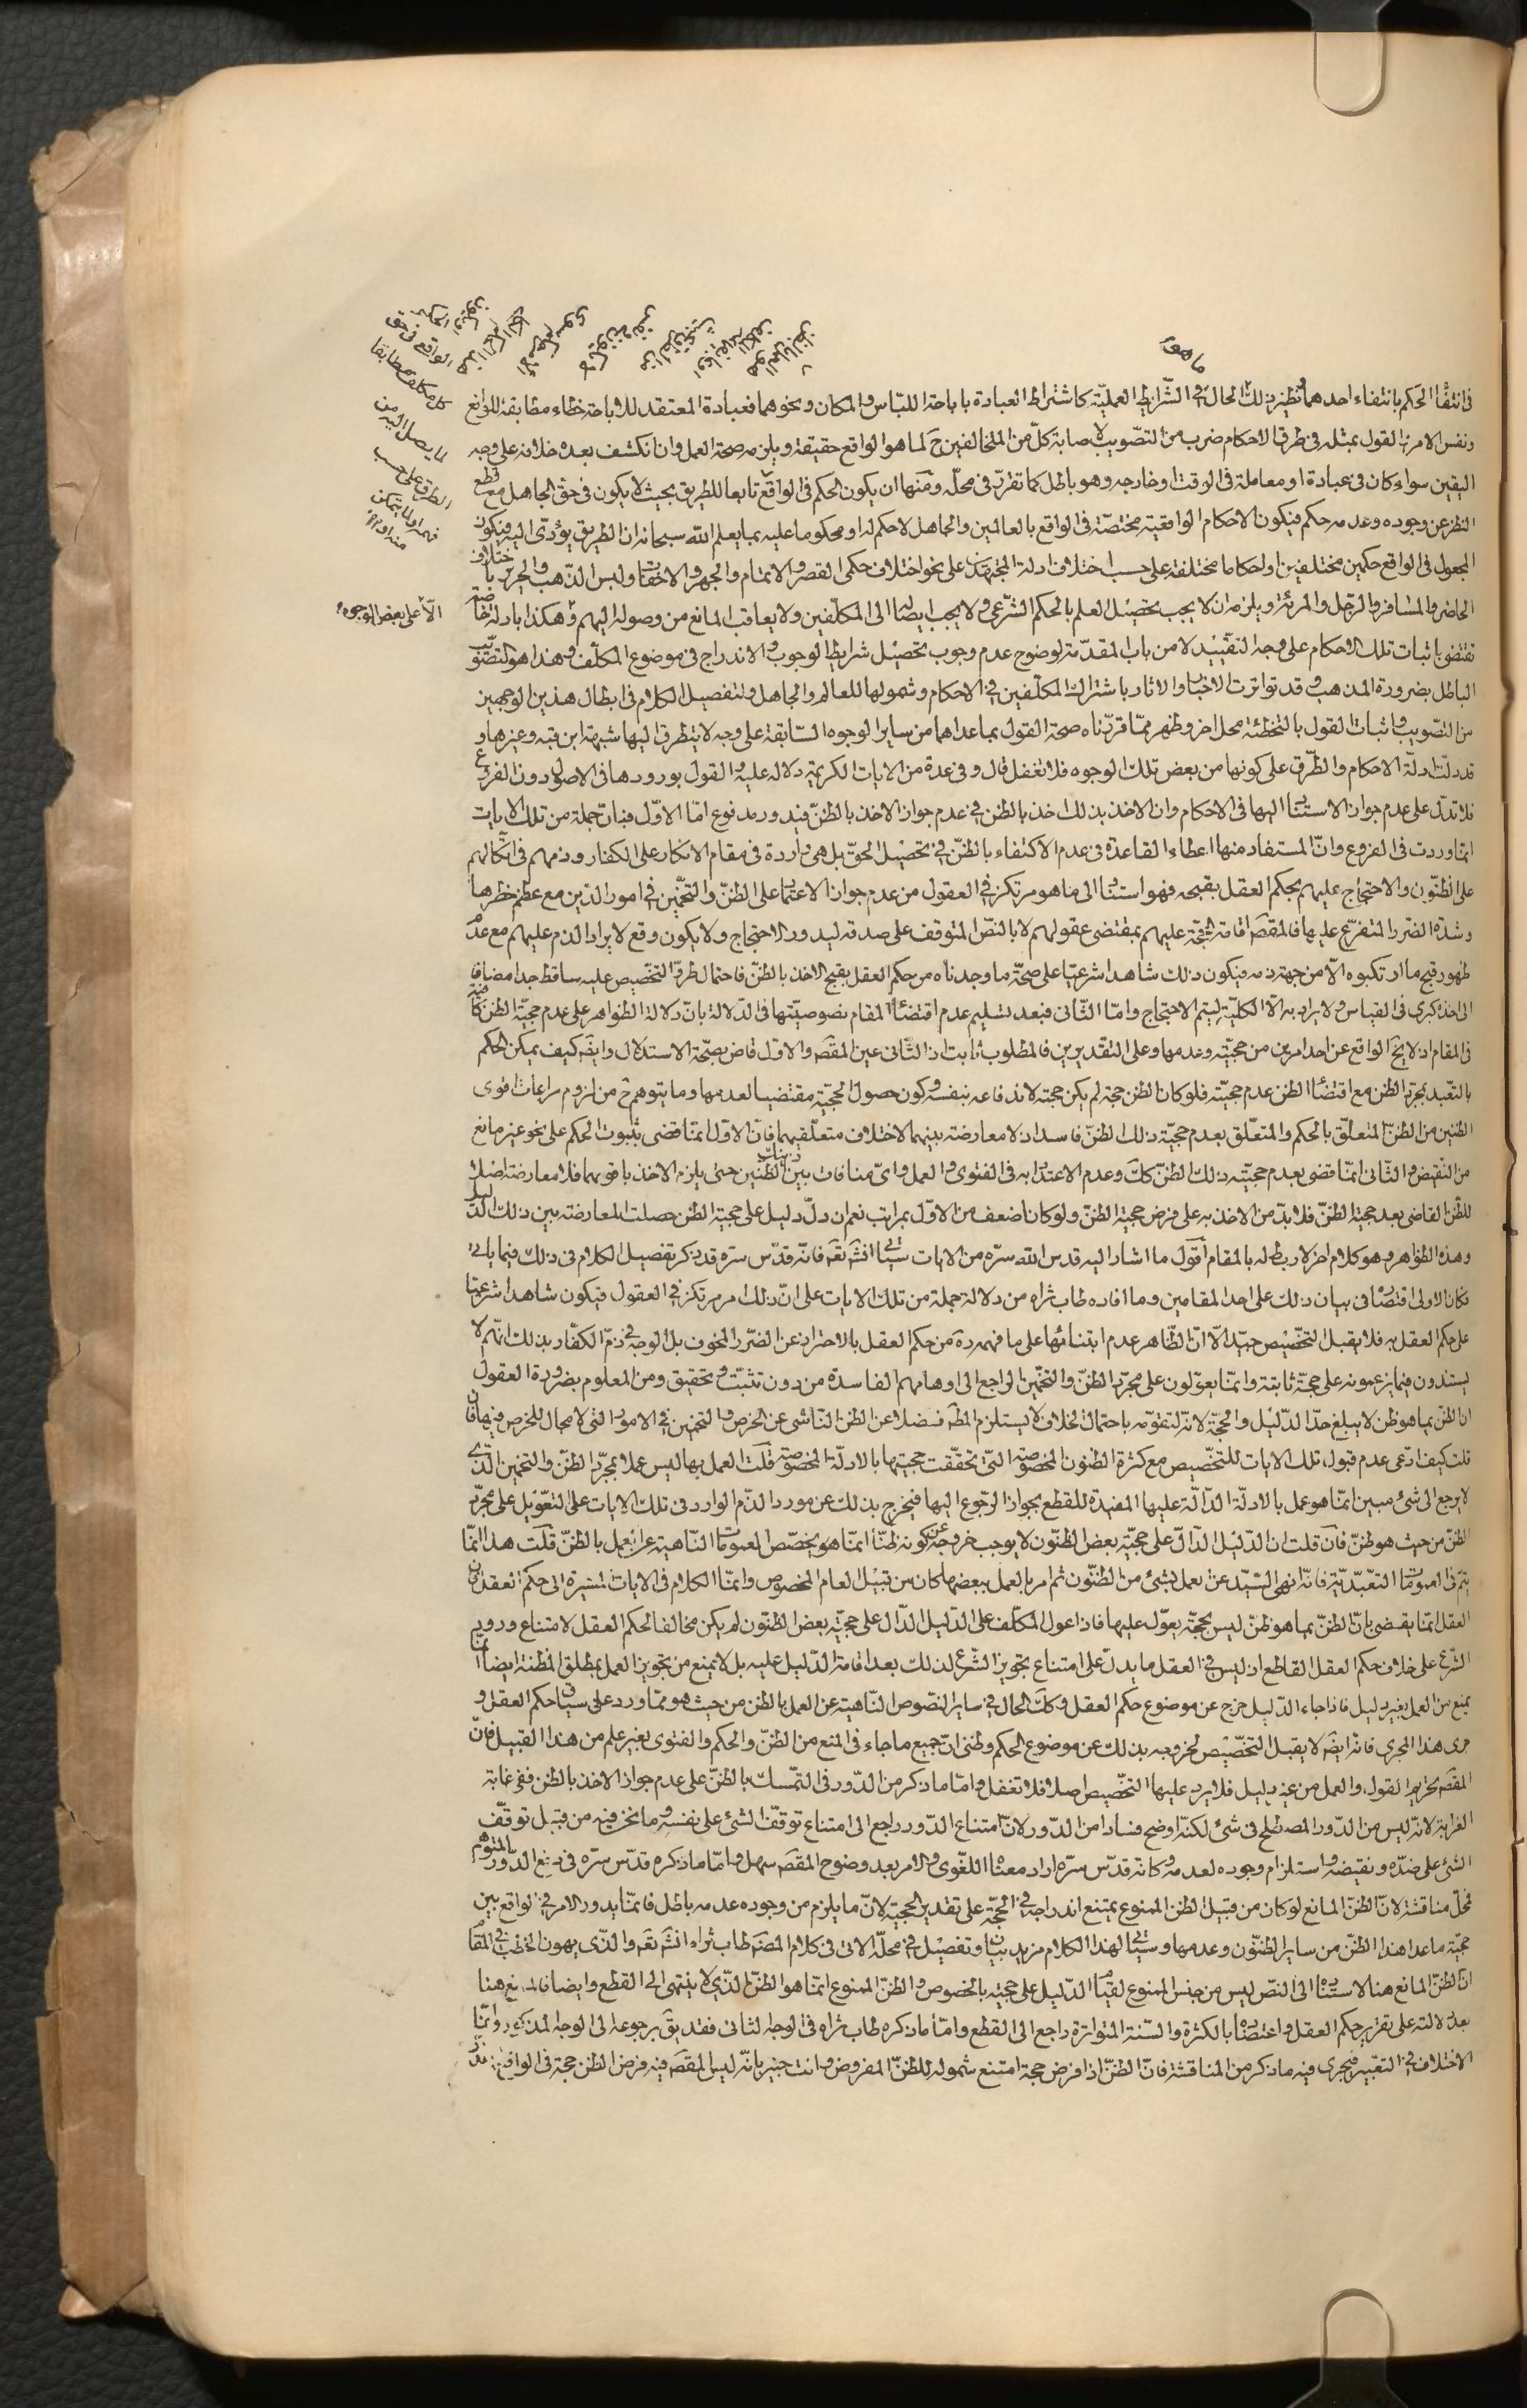 في انتفاء الحكم بانتفاء احدهما ونظير ذلك الحال في الشرايط العملية كاشتراط العبادة باباحة اللباس والمكان ونحوهما فعبادة المعتقد للاباحة خطاء مطابقة للواقع
ونفس الامر القول بمثله في طرق الاحكام ضرب من التصويب لاصابة كل من المخالفين ح لما هو الواقع حقيقة ويلزمه صحة العمل وان انكشف بعده خلافه على وجه
اليقين سواء كان في عبادة او معاملة في الوقت او خارجه وهو باطل كما تقرر في محله ومنها ان يكون الحكم في الواقع تابعا للطريق بحيث لا يكون في حق الجاهل مع قطع
النظر عن وجوده وعدمه حكم فيكون الاحكام الواقعية مختصة في الواقع بالعالمين والجاهل لا حكم له او محكوما عليه بما يعلم الله سبحانه ان الطريق يؤدى اليه فيكون
المجعول في الواقع حكمين مختلفين او احكاما مختلفة على حسب اختلاف ادلة المجتهدين على نحو اختلاف حكمى القصر والاتمام والجهر والاخفات ولبس الذهب والحرير باختلاف
الحاضر والمسافر والرجل والمرئة ويلزمه ان لا يجب تحصيل العلم بالحكم الشرعي ولا يجب ايصاله الى المكلفين ولا يعاقب المانع من وصوله اليهم وهكذا بادلة خاصة
تقتضى باثبات تلك الاحكام على وجه التقييد لا من باب المقدمة لوضوح عدم وجوب تحصيل شرايط الوجوب والاندراج في موضوع المكلف وهذا هو التصويب
الباطل بضرورة المذهب وقد تواترت الاخبار والاثار باشتراك المكلفين في الاحكام وشمولها للعالم والجاهل ولتفصيل الكلام في ابطال هذين الوجهين
من التصويب واثبات القول بالتخطئة محل اخر وظهر مما قررناه صحة القول بما عداهما من ساير الوجوه السابقة على وجه لا يتطرق اليها شبهة ابن قبه وغيرها و
قد دلت ادلة الاحكام والطرق على كونها من بعض تلك الوجوه فلا تغفل قال وفي عدة من الايات الكريمة دلالة عليه والقول بورودها في الاصول دون الفروع
فلا تدل على عدم جواز الاستناد اليها في الاحكام وان الاخذ بذلك اخذ بالظن في عدم جواز الاخذ بالظن فيدور مدفوع اما الاول فبان جملة من تلك الايات
انما وردت في الفروع وان المستفاد منها اعطاء القاعدة في عدم الاكتفاء بالظن في تحصيل الحق بل هي واردة في مقام الانكار على الكفار وذمهم في اتكالهم
على الظنون والاحتجاج عليهم بحكم العقل بقبحه فهو استناد الى ما هو مرتكز في العقول من عدم جواز الاعتماد على الظن والتخمين في امور الدين مع عظم خطرها
وشدة الضرر المتفرع عليها فالمقصه اقامة الحجة عليهم بمقتضى عقولهم لا بالنص المتوقف على صدقه ليدور الاحتجاج ولا يكون وقع لايراد الذم عليهم مع عدم
ظهور قبح ما ارتكبوه الا من جهة ذمه فيكون ذلك شاهدا شرعيا على صحة ما وجدناه من حكم العقل بقبح الاخذ بالظن فاحتمال طرو التخصيص عليه ساقط جدا مضافا
الى اخذه كبرى في القياس ولا يراد به الا الكلية ليتم الاحتجاج واما الثاني فبعد تسليم عدم اقتضاء المقام نصوصيتها في الدلالة بان دلالة الظواهر على عدم حجية الظن كافية
في المقام اذ لا يخ الواقع عن احد امرين من حجيته وعدمها وعلى التقديرين فالمطلوب ثابت اذ الثاني عين المقصه والاول قاض بصحة الاستدلال وايضه كيف يمكن الحكم
بالتعبد بمجرد الظن مع اقتضاء الظن عدم حجيته فلو كان الظن حجة لم يكن حجة لاندفاعه بنفسه وكون حصول الحجية مقتضيا لعدمها وما يتوهم ح من لزوم مراعات اقوى
الظنين من الظن المتعلق بالحكم والمتعلق بعدم حجية ذلك الظن فاسد اذ لا معارضة بينهما لاختلاف متعلقيهما فان الاول انما قضى بثبوت الحكم على نحو غير مانع
من النقيض والثاني انما قضى بعدم حجيته ذلك الظن كك وعدم الاعتداد به في الفتوى والعمل واى منافات بين الظنين حتى يلزم الاخذ باقويهما فلا معارضة اصلا
للظن القاضى بعد حجية الظن فلا بد من الاخذ به على فرض حجية الظن ولو كان اضعف من الاول بمراتب نعم ان دل دليل على حجية الظن حصلت المعارضة بين ذلك الدليل
وهذه الظواهر وهو كلام اخر لا ربط له بالمقام اقول ما اشار اليه قدس الله سره من الايات سيأتي انشه تعه فانه قدس سره قد ذكر تفصيل الكلام في ذلك فيما ياتي
فكان الاولى اقتصارا في بيان ذلك على احد المقامين وما افاده طاب ثراه من دلالة جملة من تلك الايات على ان ذلك امر مرتكز في العقول فيكون شاهدا شرعيا
على حكم العقل به فلا يقبل التخصيص جيد الا ان الظاهر عدم ابتنائها على ما فهمه رة من حكم العقل بالاحتراز عن الضرر المخوف بل الوجه في ذم الكفار بذلك انهم لا
يستندون فيما يزعمونه على حجة ثابتة وانما يعولون على مجرد الظن والتخمين الراجع الى اوهامهم الفاسدة من دون تثبت وتحقيق ومن المعلوم بضرورة العقول
ان الظن بما هو ظن لا يبلغ حد الدليل والحجة لانه لتقومه باحتمال الخلاف لا يستلزم المظه فضلا عن الظن الناشى عن الخرص والتخمين في الامور التى لا مجال للخرص فيها فان
قلت كيف ادعى عدم قبول تلك الايات للتخصيص مع كثرة الظنون المخصوصة التى تحققت حجيتها بالادلة المخصوصة قلت العمل بها ليس عملا بمجرد الظن والتخمين الذي
لا يرجع الى شئ مبين انما هو عمل بالادلة الدالة عليها المفيدة للقطع بجواز الرجوع اليها فيخرج بذلك عن مورد الذم الوارد في تلك الايات على التعويل على مجرد
الظن من حيث هو ظن فان قلت ان الدليل الدال على حجية بعض الظنون لا يوجب خروجه عن كونه ظنا انما هو يخصص العمومات الناهية عن العمل بالظن قلت هذا انما
يتم في العمومات التعبدية فانه اذا نهى السيد عن العمل بشئ من الظنون ثم امر بالعمل ببعضها كان من قبيل العام المخصوص وانما الكلام في الايات المشيرة الى حكم العقل فان
العقل انما يقضى بان الظن بما هو ظن ليس بحجة يعول عليها فاذا عول المكلف على الدليل الدال على حجية بعض الظنون لم يكن مخالفا لحكم العقل لامتناع ورود
الشرع على خلاف حكم العقل القاطع اذ ليس في العقل ما يدل على امتناع تجويز الشرع لذلك بعد اقامة الدليل عليه بل لا يمنع من تجويز العمل بمطلق المظنة ايضا انما
يمنع من العمل بغير دليل فاذا جاء الدليل خرج عن موضوع حكم العقل وكك الحال في ساير النصوص الناهية عن العمل بالظن من حيث هو مما ورد على سياق حكم العقل و
جرى هذا المجرى فانه ايضه لا يقبل التخصيص لخروجه بذلك عن موضوع الحكم وظنى ان جميع ما جاء في المنع من الظن والحكم والفتوى بغير علم من هذا القبيل فان
المقصه تحريم القول والعمل من غير دليل فلا يرد عليها التخصيص اصلا فلا تغفل واما ما ذكر من الدور في التمسك بالظن على عدم جواز الاخذ بالظن ففي غاية
الغرابة لانه ليس من الدور المصطلح في شئ لكنه اوضح فسادا من الدور لان امتناع الدور راجع الى امتناع توقف الشئ على نفسه وما نحن فيه من قبيل توقف
الشئ على ضده ونقيضه واستلزام وجوده لعدمه وكانه قدس سره اراد معناه اللغوى والامر بعد وضوح المقصه سهل واما ما ذكره قدس سره في دفع الدور المتوهم
فمحل مناقشة لان الظن المانع لو كان من قبيل الظن الممنوع يمتنع اندراجه في الحجة على تقدير الحجية لان ما يلزم من وجوده عدمه باطل فانما يدور الامر في الواقع بين
حجية ما عدا هذا الظن من ساير الظنون وعدمها وسيأتي لهذا الكلام مزيد بيان وتفصيل في محله الاتى في كلام المصنه طاب ثراه انشه تعه والذى يهون الخطب في المقام
ان الظن المانع هنا لاستناده الى النص ليس من جنس الممنوع لقيام الدليل على حجيته بالخصوص والظن الممنوع انما هو الظن الذي لا ينتهى الى القطع وايضا فالمانع هنا
بعد دلالته على تقرير حكم العقل واعتضاده بالكثرة والسنة المتواترة راجع الى القطع واما ما ذكره طاب ثراه في الوجه الثانى فقد يقه برجوعه الى الوجه المذكور وانما
الاختلاف في التعبير فيجرى فيه ما ذكر من المناقشة فان الظن اذا فرض حجة امتنع شموله للظن المفروض وانت خبير بانه ليس المقصه فيه فرض الظن حجة في الواقع
الواقع في حق
كل مكلف مطابقا
لما يصل اليه من
الطرق على حسب
فهمه او لما يتمكن
منه او نحوه
الا على بعض الوجوه